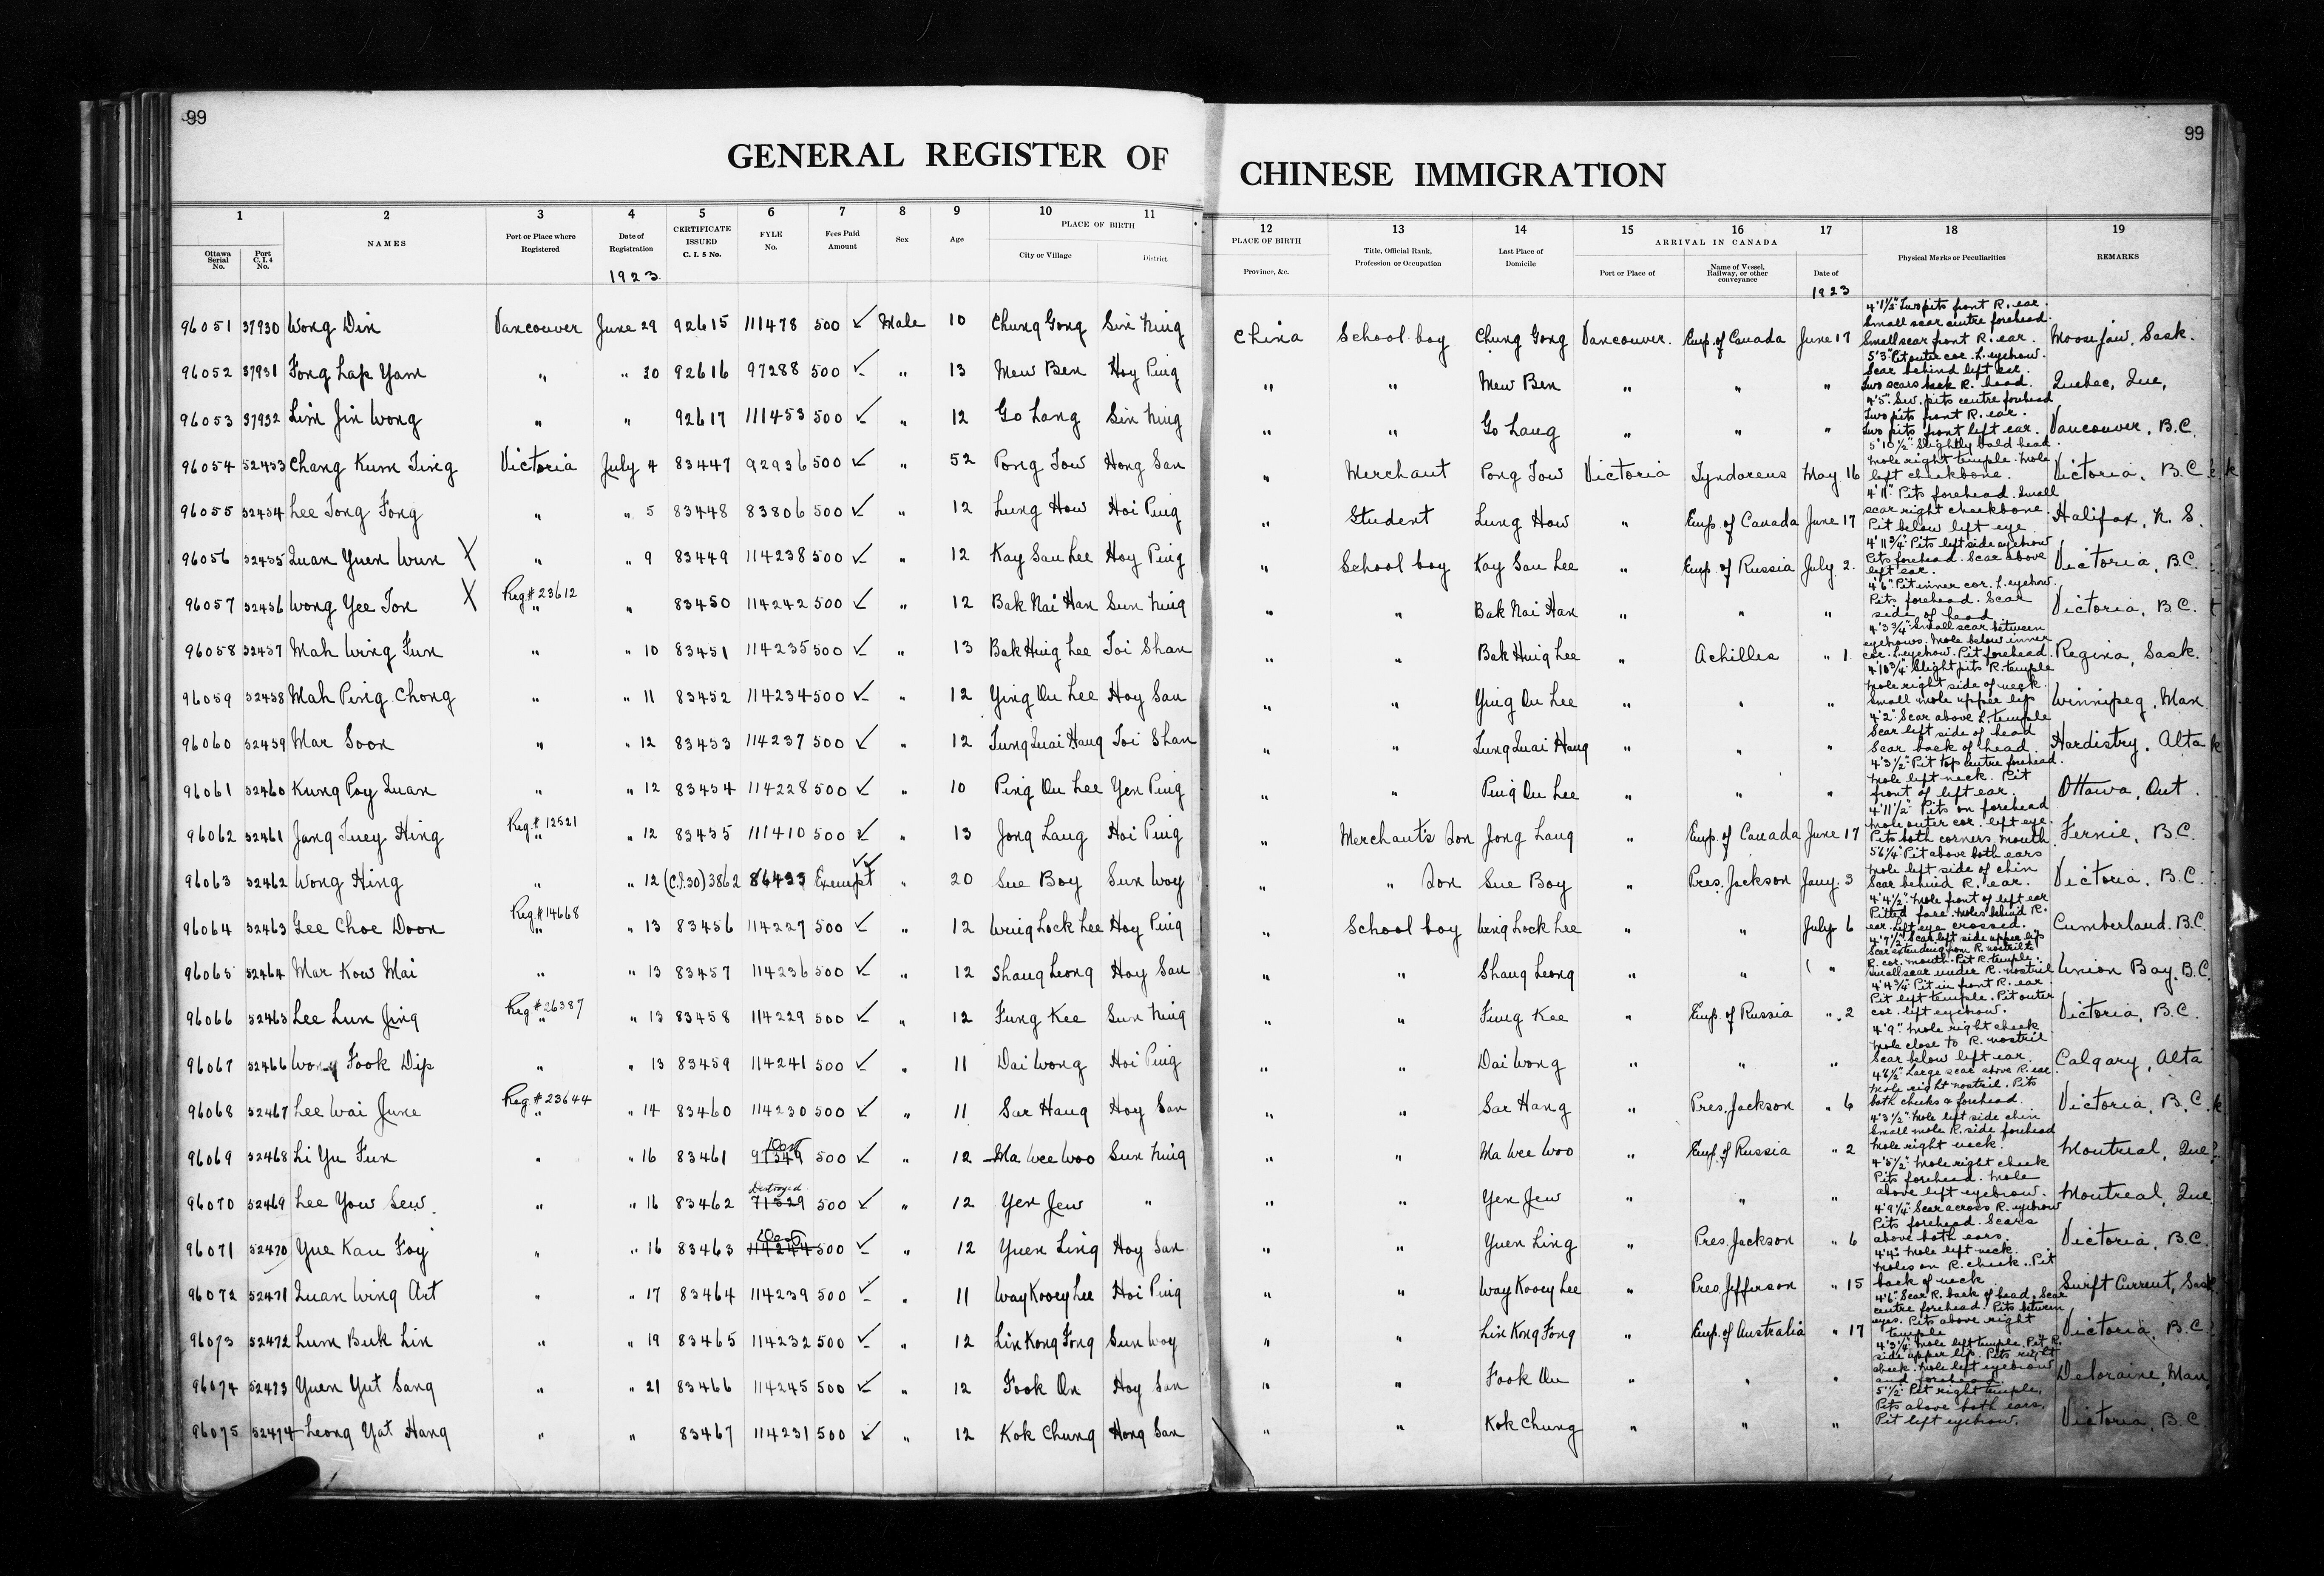 99
99
GENERAL REGISTER OF CHINESE IMMIGRATION
1 2 3 4 5 6 7 8 9 10 11 12 13 14 15 16 17 18 19
Ottawa Serial No. Port C.I.4 No. NAMES Port or Place where Registered Date of Registration CERTIFICATE ISSUED C. I. 5 No. FYLE No. Fees Paid Amount Sex Age PLACE OF BIRTH City or Village District PLACE OF BIRTH Province, &c. Title, Official Rank, Profession or Occupation Last Place of Domicile ARRIVAL IN CANADA Port or Place of Name of Vessel, Railway, or other conveyance Date of Physical Marks or Peculiarities REMARKS
1923 1923
96051 37930 Wong Din Vancouver June 29 92615 111478 500 ✓ Male 10 Chung Gong Sin Ning China School boy Chung Gong Vancouver. Emp. of Canada June 17 4'1½" Two pits front R. ear. Small scar centre forehead. Small scar front R. ear. Moose Jaw, Sask.
96052 37931 Fong Lap Yam " " 30 92616 97288 500 ✓ " 13 Mew Ben Hoy Ping " " Mew Ben " " " 5'3" Pit outer cor. L. eyebrow. Scar behind left ear. Two scars back R. head. Quebec, Que,
96053 37932 Lim Jin Wong " " 92617 111453 500 ✓ " 12 Go Lang Sin Ning " " Go Lang " " " 4'5" Sev. pits centre forehead Two pits front R. ear. Two pits front left ear. Vancouver, B.C.
96054 52453 Chang Kum Ting Victoria July 4 83447 92936 500 ✓ " 52 Pong Tow Hong San " Merchant Pong Tow Victoria Tyndareus May 16 5'10½" Slightly bald head. Mole right temple. Mole left cheekbone. Victoria, B.C.
96055 52454 Lee Tong Fong " " 5 83448 83806 500 ✓ " 12 Lung How Hoi Ping " Student Lung How " Emp. of Canada June 17 4'11" Pits forehead. Small scar right cheekbone. Pit below left eye Halifax, N.S.
96056 52455 Quan Yuen Wun X " " 9 83449 114238 500 ✓ " 12 Kay San Lee Hoy Ping " School boy Kay San Lee " Emp. of Russia July 2. 4'11¾" Pits left side eyebrow Pits forehead. Scar above left ear. Victoria, B.C.
96057 52456 Wong Yee Ton X Reg.# 23612 " " 83450 114242 500 ✓ " 12 Bak Nai Han Sun Ning " " Bak Nai Han " " " 4'6" Pit inner cor. L. eyebrow. Pits forehead. Scar side of head Victoria, B.C.
96058 52457 Mah Wing Fun " " 10 83451 114235 500 ✓ " 13 Bak Hing Lee Toi Shan " " Bak Hing Lee " Achilles " 1 4'3¾" Small scar between eyebrows. Mole below inner cor. L. eyebrow. Pit forehead. Regina, Sask.
96059 52458 Mah Ping Chong " " 11 83452 114234 500 ✓ " 12 Ying On Lee Hoy San " " Ying On Lee " " " 4'10¾" Slight pits R. temple Mole right side of neck. Small mole upper lip Winnipeg, Man.
96060 52459 Mar Soon " " 12 83453 114237 500 ✓ " 12 Tung Quai Hang Toi Shan " " Tung Quai Hang " " " 4'2" Scar above L. temple Scar left side of head Scar back of head. Hardistry. Alta
96061 52460 Kung Poy Quan " " 12 83454 114228 500 ✓ " 10 Ping On Lee Yen Ping " " Ping On Lee " " " 4'3½" Pit top centre forehead. Mole left neck. Pit front of left ear. Ottawa, Ont.
96062 52461 Jang Tuey Hing Reg.# 12521 " " 12 83455 111410 500 ✓ " 13 Jong Lang Hoi Ping " Merchant's Son Jong Lang " Emp. of Canada June 17 4'11½" Pits on forehead Mole outer cor. left eye. Pits both corners mouth. Fernie, B.C.
96063 52462 Wong Hing " " 12 (C.I.30) 3862 86423 Exempt ✓✓ " 20 Sue Boy Sun Woy " " Son Sue Boy " Pres. Jackson Jany. 3 5'6¼" Pit above both ears Mole left side of chin Scar behind R. ear. Victoria, B.C.
96064 52463 Gee Choe Doon Reg.# 14668 " " 13 83456 114227 500 ✓ " 12 Wing Lock Lee Hoy Ping " School boy Wing Lock Lee " " July 6 4'4½" Mole front of left ear Pitted face. Moles behind R. ear. Left eye crossed. Cumberland. B.C.
96065 52464 Mar Kow Mai " " 13 83457 114236 500 ✓ " 12 Shang Leong Hoy San " " Shang Leong " " " 4'7½" Scar left side upper lip Scar extending from R. nostril to R. cor. mouth. Pit R. temple. Small scar under R. nostril Union Bay, B.C.
96066 52465 Lee Lun Jing Reg.# 26387 " " 13 83458 114229 500 ✓ " 12 Fung Kee Sun Ning " " Fung Kee " Emp. of Russia " 2 4'4¾" Pit in front R. ear. Pit left temple. Pit outer cor. left eyebrow. Victoria, B.C.
96067 52466 Wong Fook Dip " " 13 83459 114241 500 ✓ " 11 Dai Wong Hoi Ping " " Dai Wong " " " 4'9" Mole right cheek Mole close to R. nostril Scar below left ear. Calgary, Alta
96068 52467 Lee Wai June Reg.# 23644 " " 14 83460 114230 500 ✓ " 11 Sar Hang Hoy San " " Sar Hang " Pres. Jackson " 6 4'6½" Large scar above R. ear. Mole right nostril. Pits both cheeks & forehead. Victoria, B.C.
96069 52468 Li Yu Fun " " 16 83461 97349 500 ✓ " 12 Ma Wee Woo Sun Ning " " Ma Wee Woo " Emp. of Russia " 2 4'3½" Mole left side chin Small mole R. side forehead Mole right neck. Montreal, Que
96070 52469 Lee Yow Sew. " " 16 83462 Destroyed 71529 500 ✓ " 12 Yen Jew " " " Yen Jew " " " 4'5½" Mole right cheek Pits forehead. Mole above left eyebrow. Montreal, Que
96071 52470 Yue Kan Foy " " 16 83463 114244 500 ✓ " 12 Yuen Ling Hoy San " " Yuen Ling " Pres. Jackson " 6 4'9¼" Scar across R. eyebrow Pits forehead. Scars above both ears. Victoria, B.C.
96072 52471 Quan Wing Art " " 17 83464 114239 500 ✓ " 11 Way Kooey Lee Hoi Ping " " Way Kooey Lee " Pres. Jefferson " 15 4'4" Mole left neck. Moles on R. cheek. Pit back of neck Swift Current, Sask
96073 52472 Lum Buk Lin " " 19 83465 114232 500 ✓ " 12 Lin Kong Fong Sun Woy " " Lin Kong Fong " Emp. of Australia " 17 4'6" Scar R. back of head. Scar centre forehead. Pits between eyes. Pits above right temple Victoria, B.C.
96074 52473 Yuen Yut Sang " " 21 83466 114245 500 ✓ " 12 Fook On Hoy San " " Fook On " " " 4'3¼" Mole left temple. Pit R. side upper lip. Pits right cheek. Mole left eyebrow and forehead. Deloraine, Man,
96075 52474 Leong Yat Hang " " 83467 114231 500 ✓ " 12 Kok Chung Hong San " " Kok Chung " " " 5'½" Pit right temple, Pits above both ears, Pit left eyebrow. Victoria, B.C.